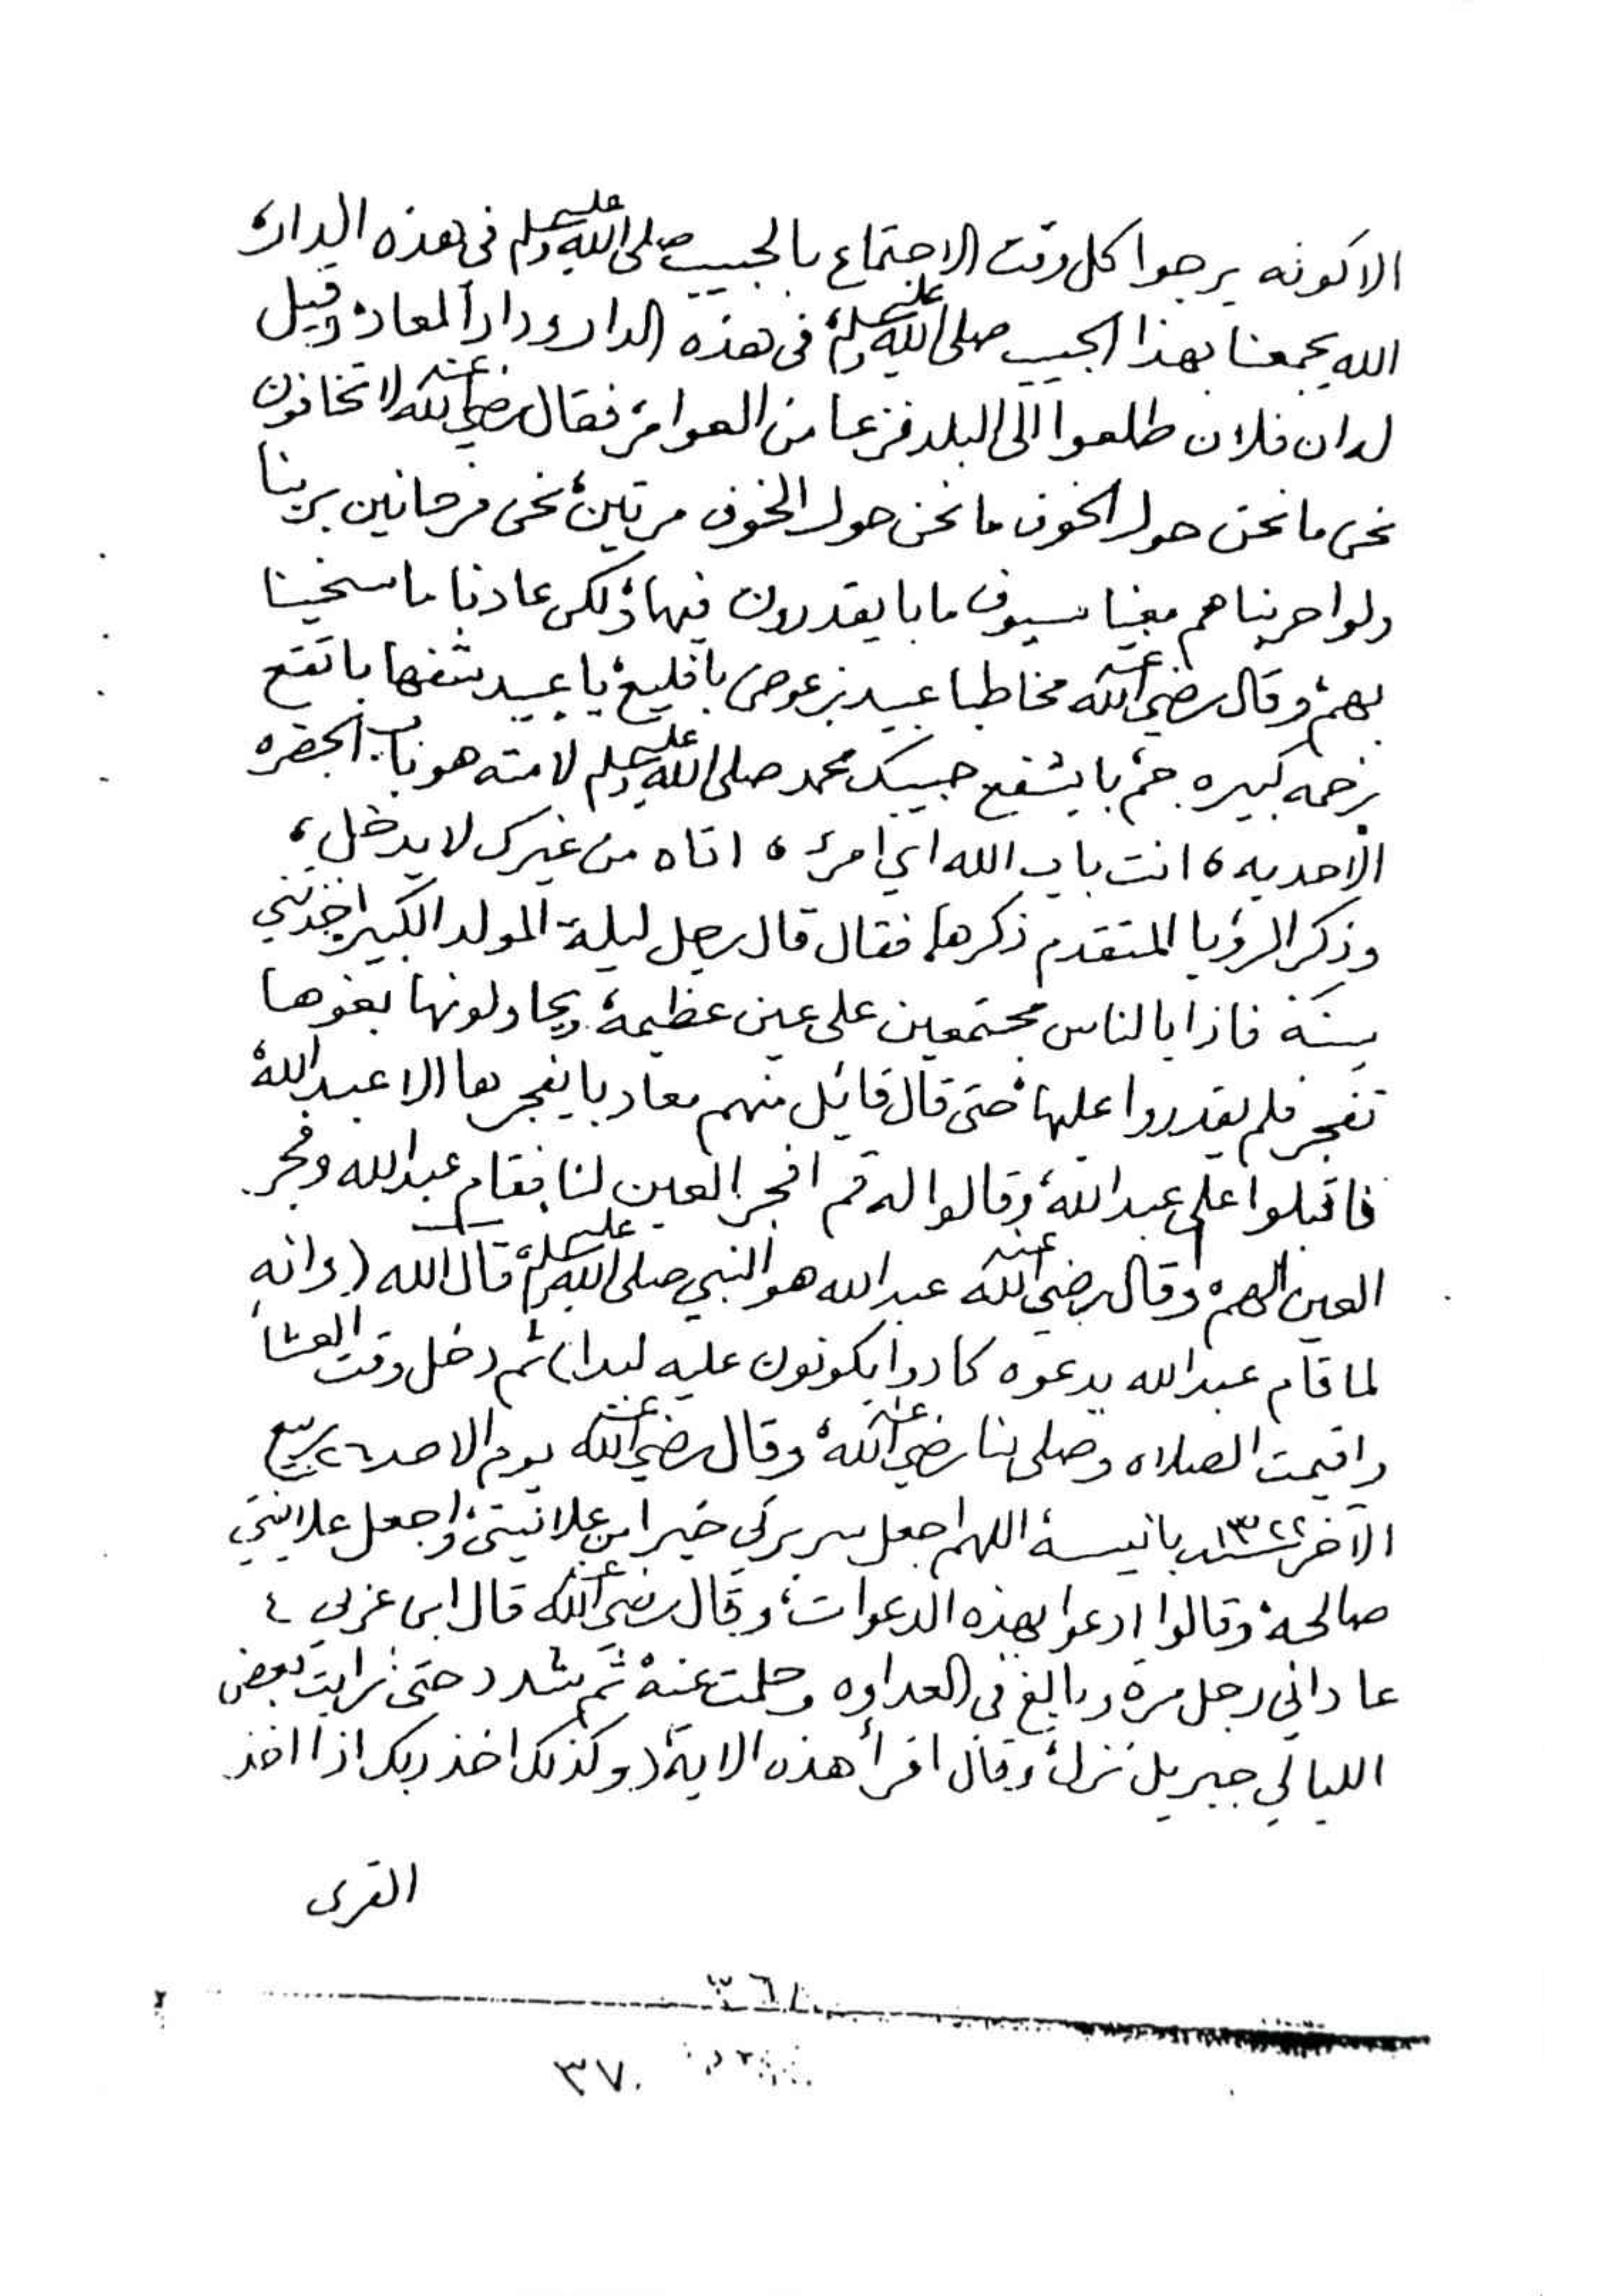 الاكونه يرجوا كل وقت الاجتماع بالحبيب صلى الله عليه وسلم في هذه الدار،
الله يجمعنا بهذا الحبيب صلى الله عليه وسلم، في هذه الدار ودار المعاد، وقيل
له ان فلان طلعوا الى البلد فزعا من العوامر، فقال رضي الله عنه لا تخافون
نحن ما نحن حول الخوف ما نحن حول الخوف مرتين، نحن فرحانين بربنا
ولوا حربناهم معنا سيوف ما با يقدرون فيها، ولكن عادنا ما سخينا
بهم، وقال رضي الله عنه مخاطبا عبيد بن عوض بافليع، يا عبيد شفها با تقع
زحمه كبيره جم، با يشفع حبيبك محمد صلى الله عليه وسلم لامته هو باب الحضره
الاحديه، انت باب الله اي امرء، اتاه من غيرك لا يدخل،
وذكر الرؤيا المتقدم ذكرها، فقال قال رجل ليلة المولد الكبير اخذتني
سنة فاذا بالناس مجتمعين على عين عظيمة، ويحاولونها بغوها
تفجر فلم يقدروا عليها، حتى قال قائل منهم معاد با يفجرها الا عبد الله،
فاقبلوا على عبد الله، وقالوا له قم افجر العين لنا فقام عبد الله وفجر
العين لهم، وقال رضي الله عنه عبد الله هو النبي صلى الله عليه وسلم، قال الله (وانه
لما قام عبد الله يدعوه كادوا يكونون عليه لبدا) ثم دخل وقت العشاء
واقيمت الصلاه وصلى بنا رضي الله عنه، وقال رضي الله عنه يوم الاحد ٢٦ ربيع
الآخر سنة ١٣٢٢ بانيسة اللهم اجعل سريرتي خيرا من علانيتي، واجعل علانيتي
صالحة، وقالوا ادعوا بهذه الدعوات، وقال رضي الله عنه قال ابن عربي،
عاداني رجل مرة وبالغ في العداوه وحلمت عنه، ثم شدد حتى رايت بعض
الليالي جبريل نزل، وقال اقرأ هذه الاية، (وكذلك اخذ ربك اذا اخذ
القرى
٣٧٠